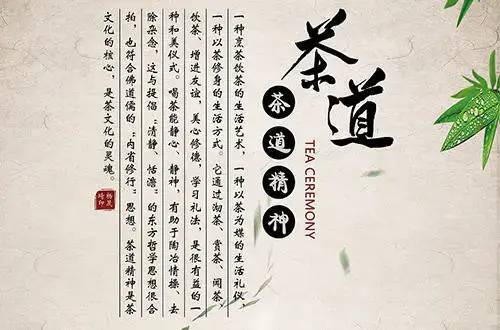 茶道
茶道精神
TEA CEREMONY
一种烹茶饮茶的生活艺术,一种以茶为媒的生活礼仪,
一种以茶修身的生活方式。它通过沏茶、赏茶、闻茶、
饮茶、增进友谊,美心修德,学习礼法,是很有益的一
种和美仪式。喝茶能静心、静神,有助于陶冶情操、去
除杂念,这与提倡“清静、恬澹”的东方哲学思想很合
拍,也符合佛道儒的“内省修行”思想。茶道精神是茶
文化的核心,是茶文化的灵魂。